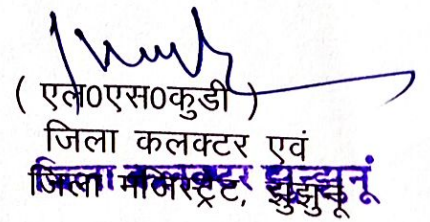 ( एल0एस0कुडी )
जिला कलक्टर एवं
जिला मजिस्ट्रेट, झुझुनू
जिला कलक्टर झुन्झुनूं